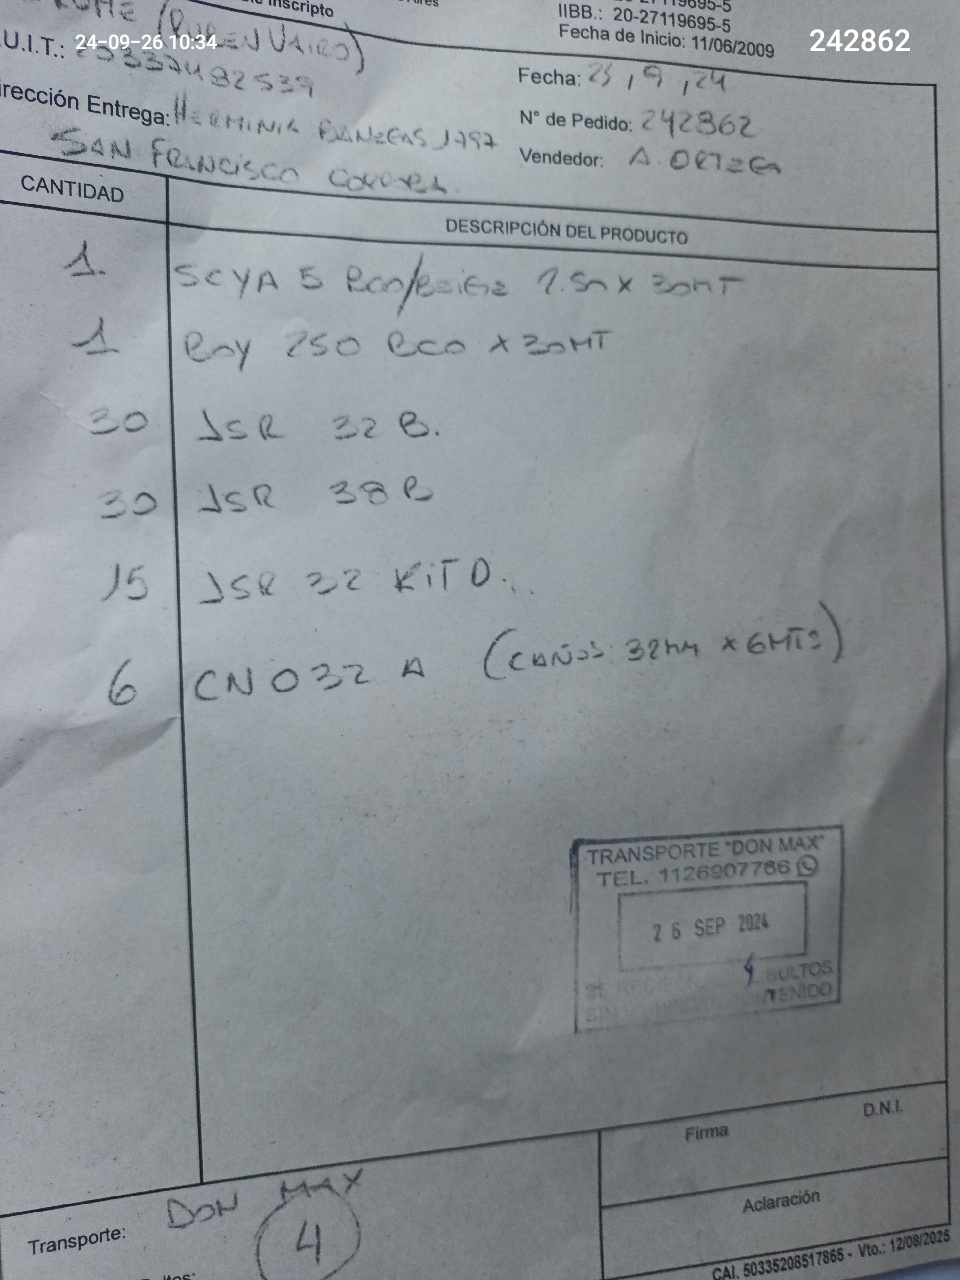 Inscripto
IIBB.: 20-27119695-5
Fecha de Inicio: 11/06/2009
24-09-26 10:34
242862
.U.I.T.:
Fecha: 25, 9, 24
rección Entrega: HERMINIA BANEGAS 1797
N° de Pedido: 242862
SAN FRANCISCO
Vendedor: A. ORTEGA
CANTIDAD
DESCRIPCIÓN DEL PRODUCTO
1. SCYA 5 x 30MT
1 250 ECO x 30MT
30 JSR 32 B.
30 JSR 38 B
15 JSR 32 KIT D.
6 CN032 A (CAÑOS 32MM x 6MTS)
TRANSPORTE "DON MAX"
TEL. 1126907766
26 SEP 2024
4 BULTOS
SIN CONTENIDO
Firma
D.N.I.
Transporte: DON MAX
4
Aclaración
CAI. 50335208517865 - Vto.: 12/08/2025